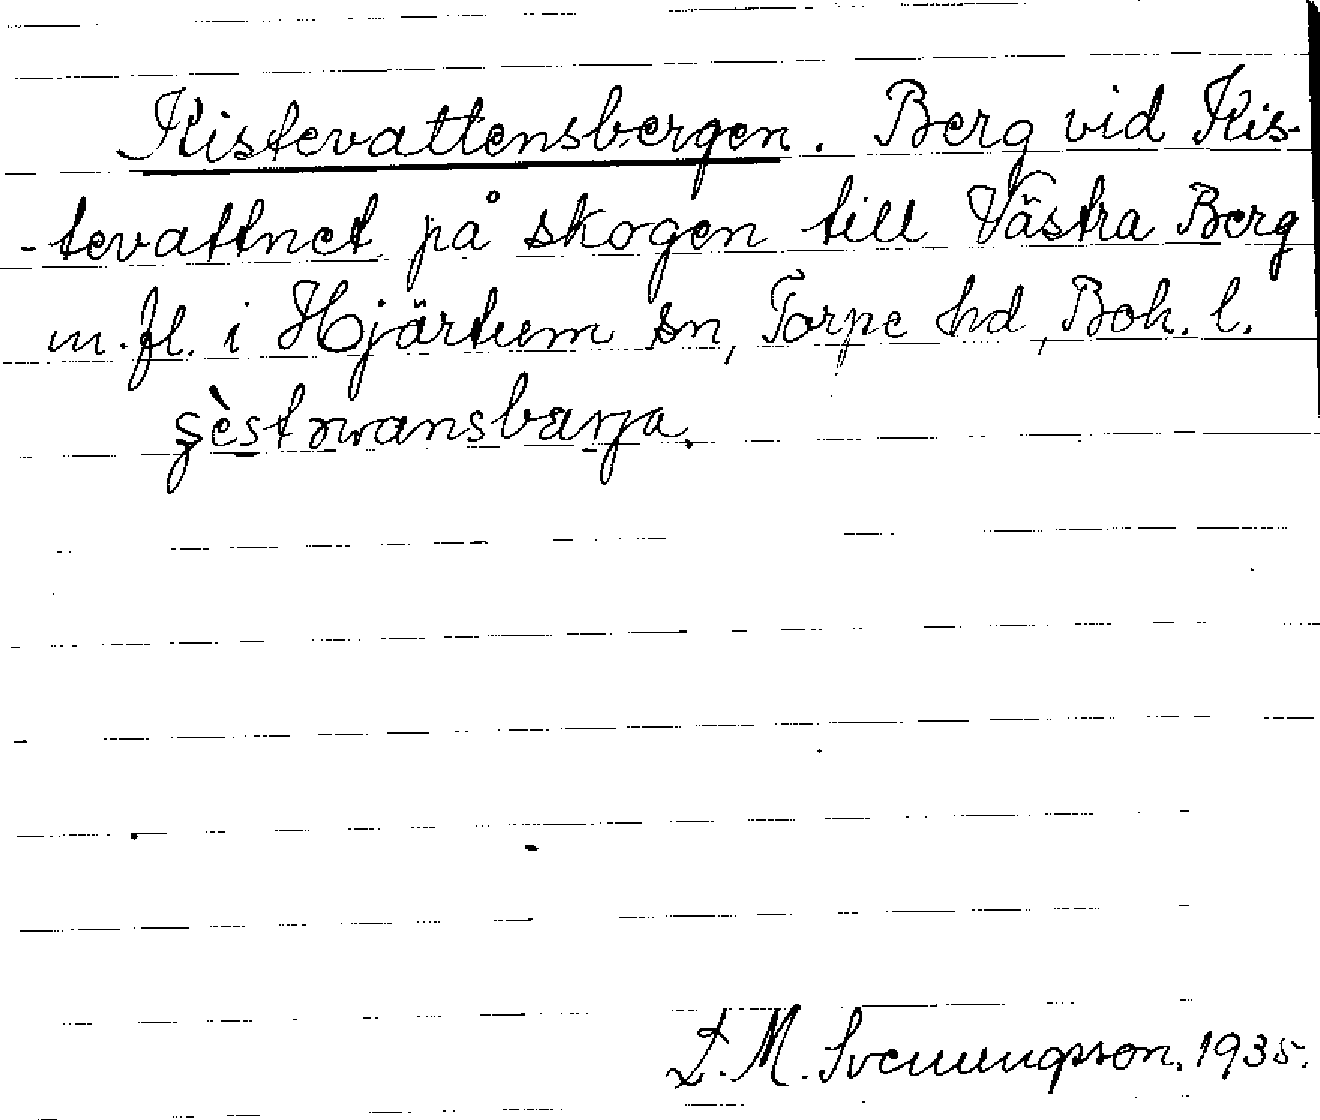 Kistevattensbergen. Berg vid Kis-
-tevattnet på skogen till Västra Berg
m.fl. i Hjärtum sn, Torpe hd, Boh. l.
L.M. Svenungsson. 1935.